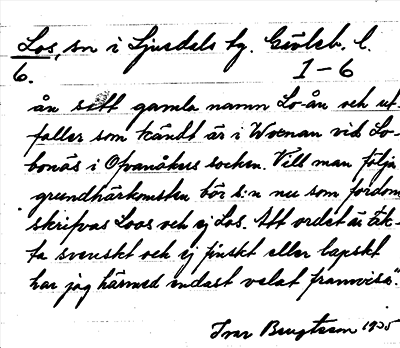 Los, sn i Ljusdals tg. Gävleb. l.
6. 1-6
ån sitt gamla namn Lo-ån och ut-
faller som kändt är i Woxnan vid Lo-
bonäs i Ofvanåkers socken. Vill man följa
grundhärkomsten bör s:n nu som fordom
skrifvas Loos och ej Los. Att ordet är äk-
ta svenskt och ej finskt eller lapskt
har jag härmed endast velat framvisa".
Ivar Bengtsson 1935